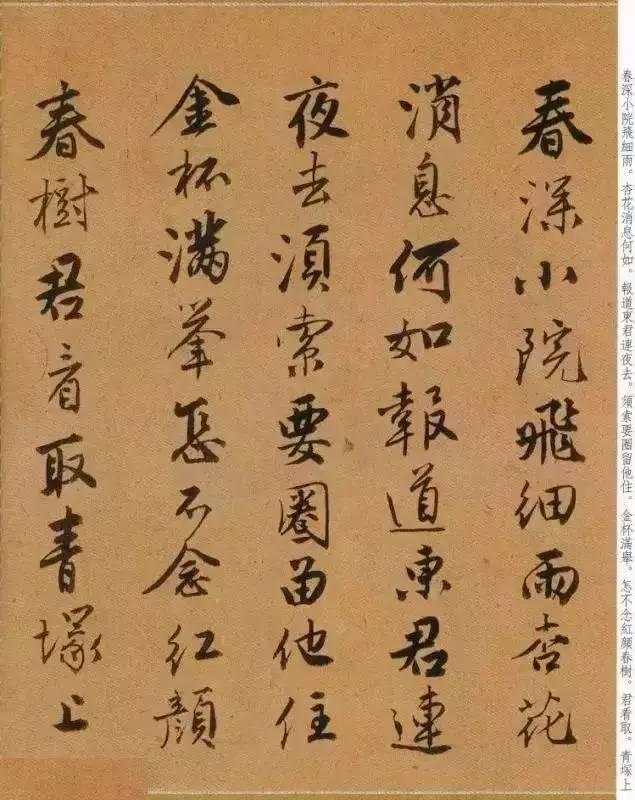 春深小院飛細雨。杏花消息何如。報道東君連夜去。須索要圈留他住。金杯滿舉。怎不念紅顔春樹。君看取。青塚上
春深小院飛細雨杏花
消息何如報道東君連
夜去須索要圈留他住
金杯滿舉怎不念紅顔
春樹君看取青塚上